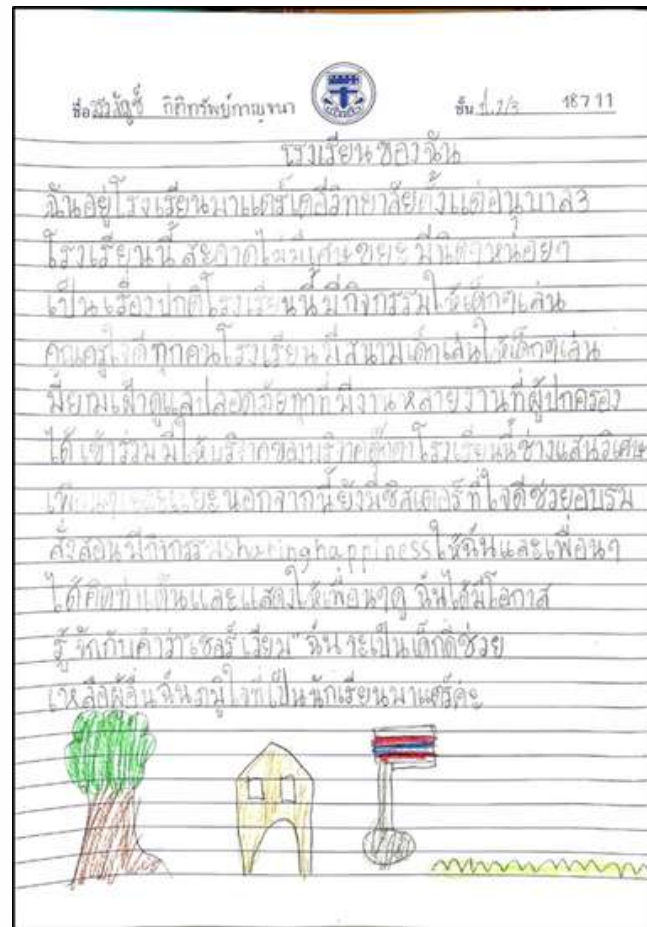 ชื่อ กิติทรัพย์กาญจนา ชั้น ป.2/3 18711
โรงเรียนของฉัน
ฉันอยู่โรงเรียนมาแตร์เดอีวิทยาลัยตั้งแต่อนุบาล3
โรงเรียนนี้สะอาดไม่มีเศษขยะ หน่อยๆ
เป็นเรื่องปกติโรงเรียนนี้มีกิจกรรมให้เด็กๆเล่น
คุณครูใจดีทุกคนโรงเรียนมีสนามเด็กเล่นให้เด็กๆเล่น
มียามเฝ้าดูแลปลอดภัยทุกที่มีงานหลายงานที่ผู้ปกครอง
ได้เข้าร่วมมีให้บริจาคของบริจาคตุ๊กตาโรงเรียนนี้ช่างแสนวิเศษ
เพื่อนๆเยอะแยะนอกจากนี้ยังมีซิสเตอร์ที่ใจดีช่วยอบรม
สั่งสอนมีกิจกรรมsharinghappinessให้ฉันและเพื่อนๆ
ได้คิดท่าเต้นและแสดงให้เพื่อนๆดู ฉันได้มีโอกาส
รู้จักกับคำว่า"เซอร์เวียม"ฉันจะเป็นเด็กดีช่วย
เหลือผู้อื่นฉันภูมิใจที่เป็นนักเรียนมาแตร์ค่ะ